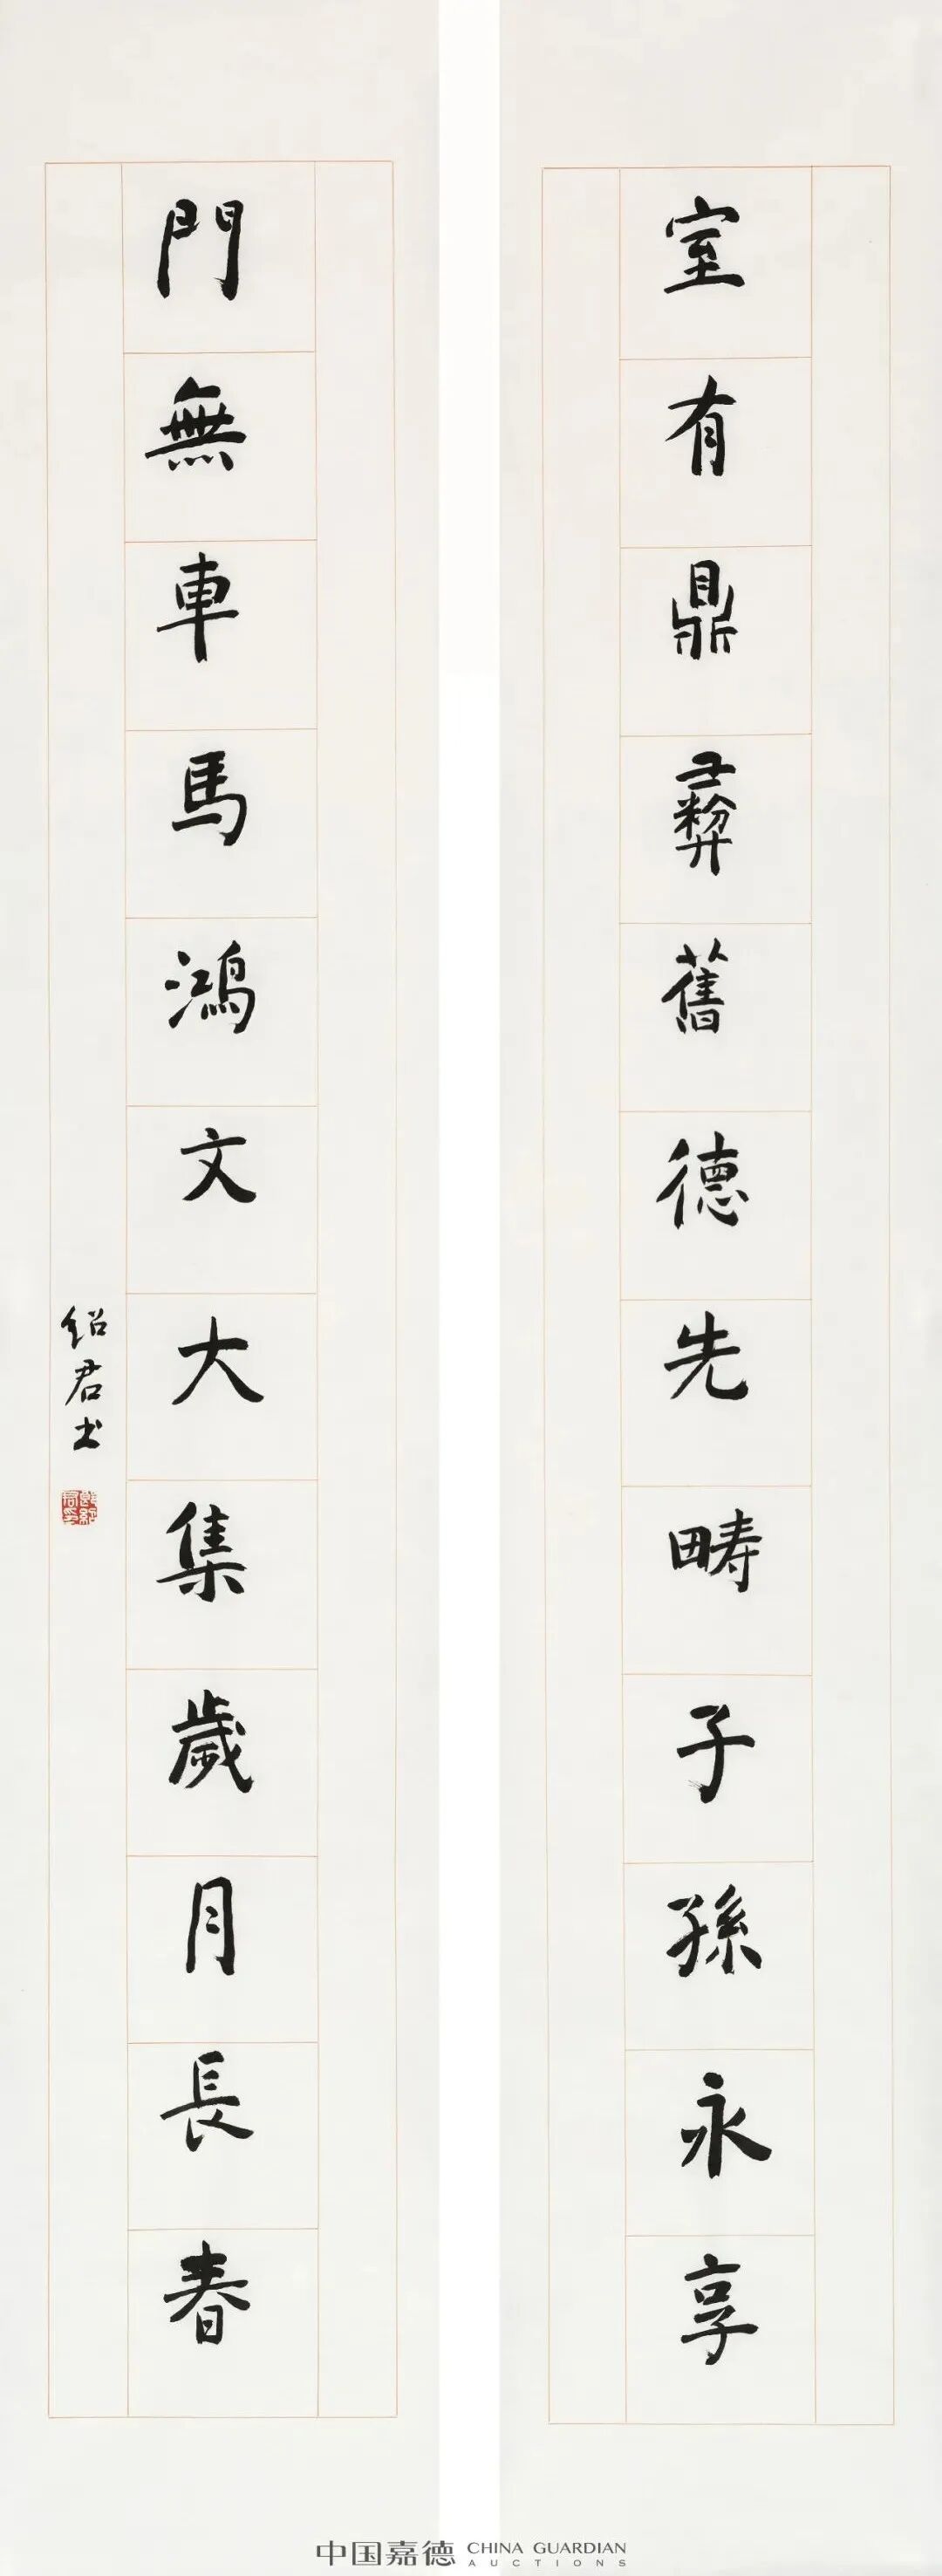 室有鼎彝舊德先疇子孫永享
門無車馬鴻文大集歲月長春
绍君书
中国嘉德 CHINA GUARDIAN
AUCTIONS